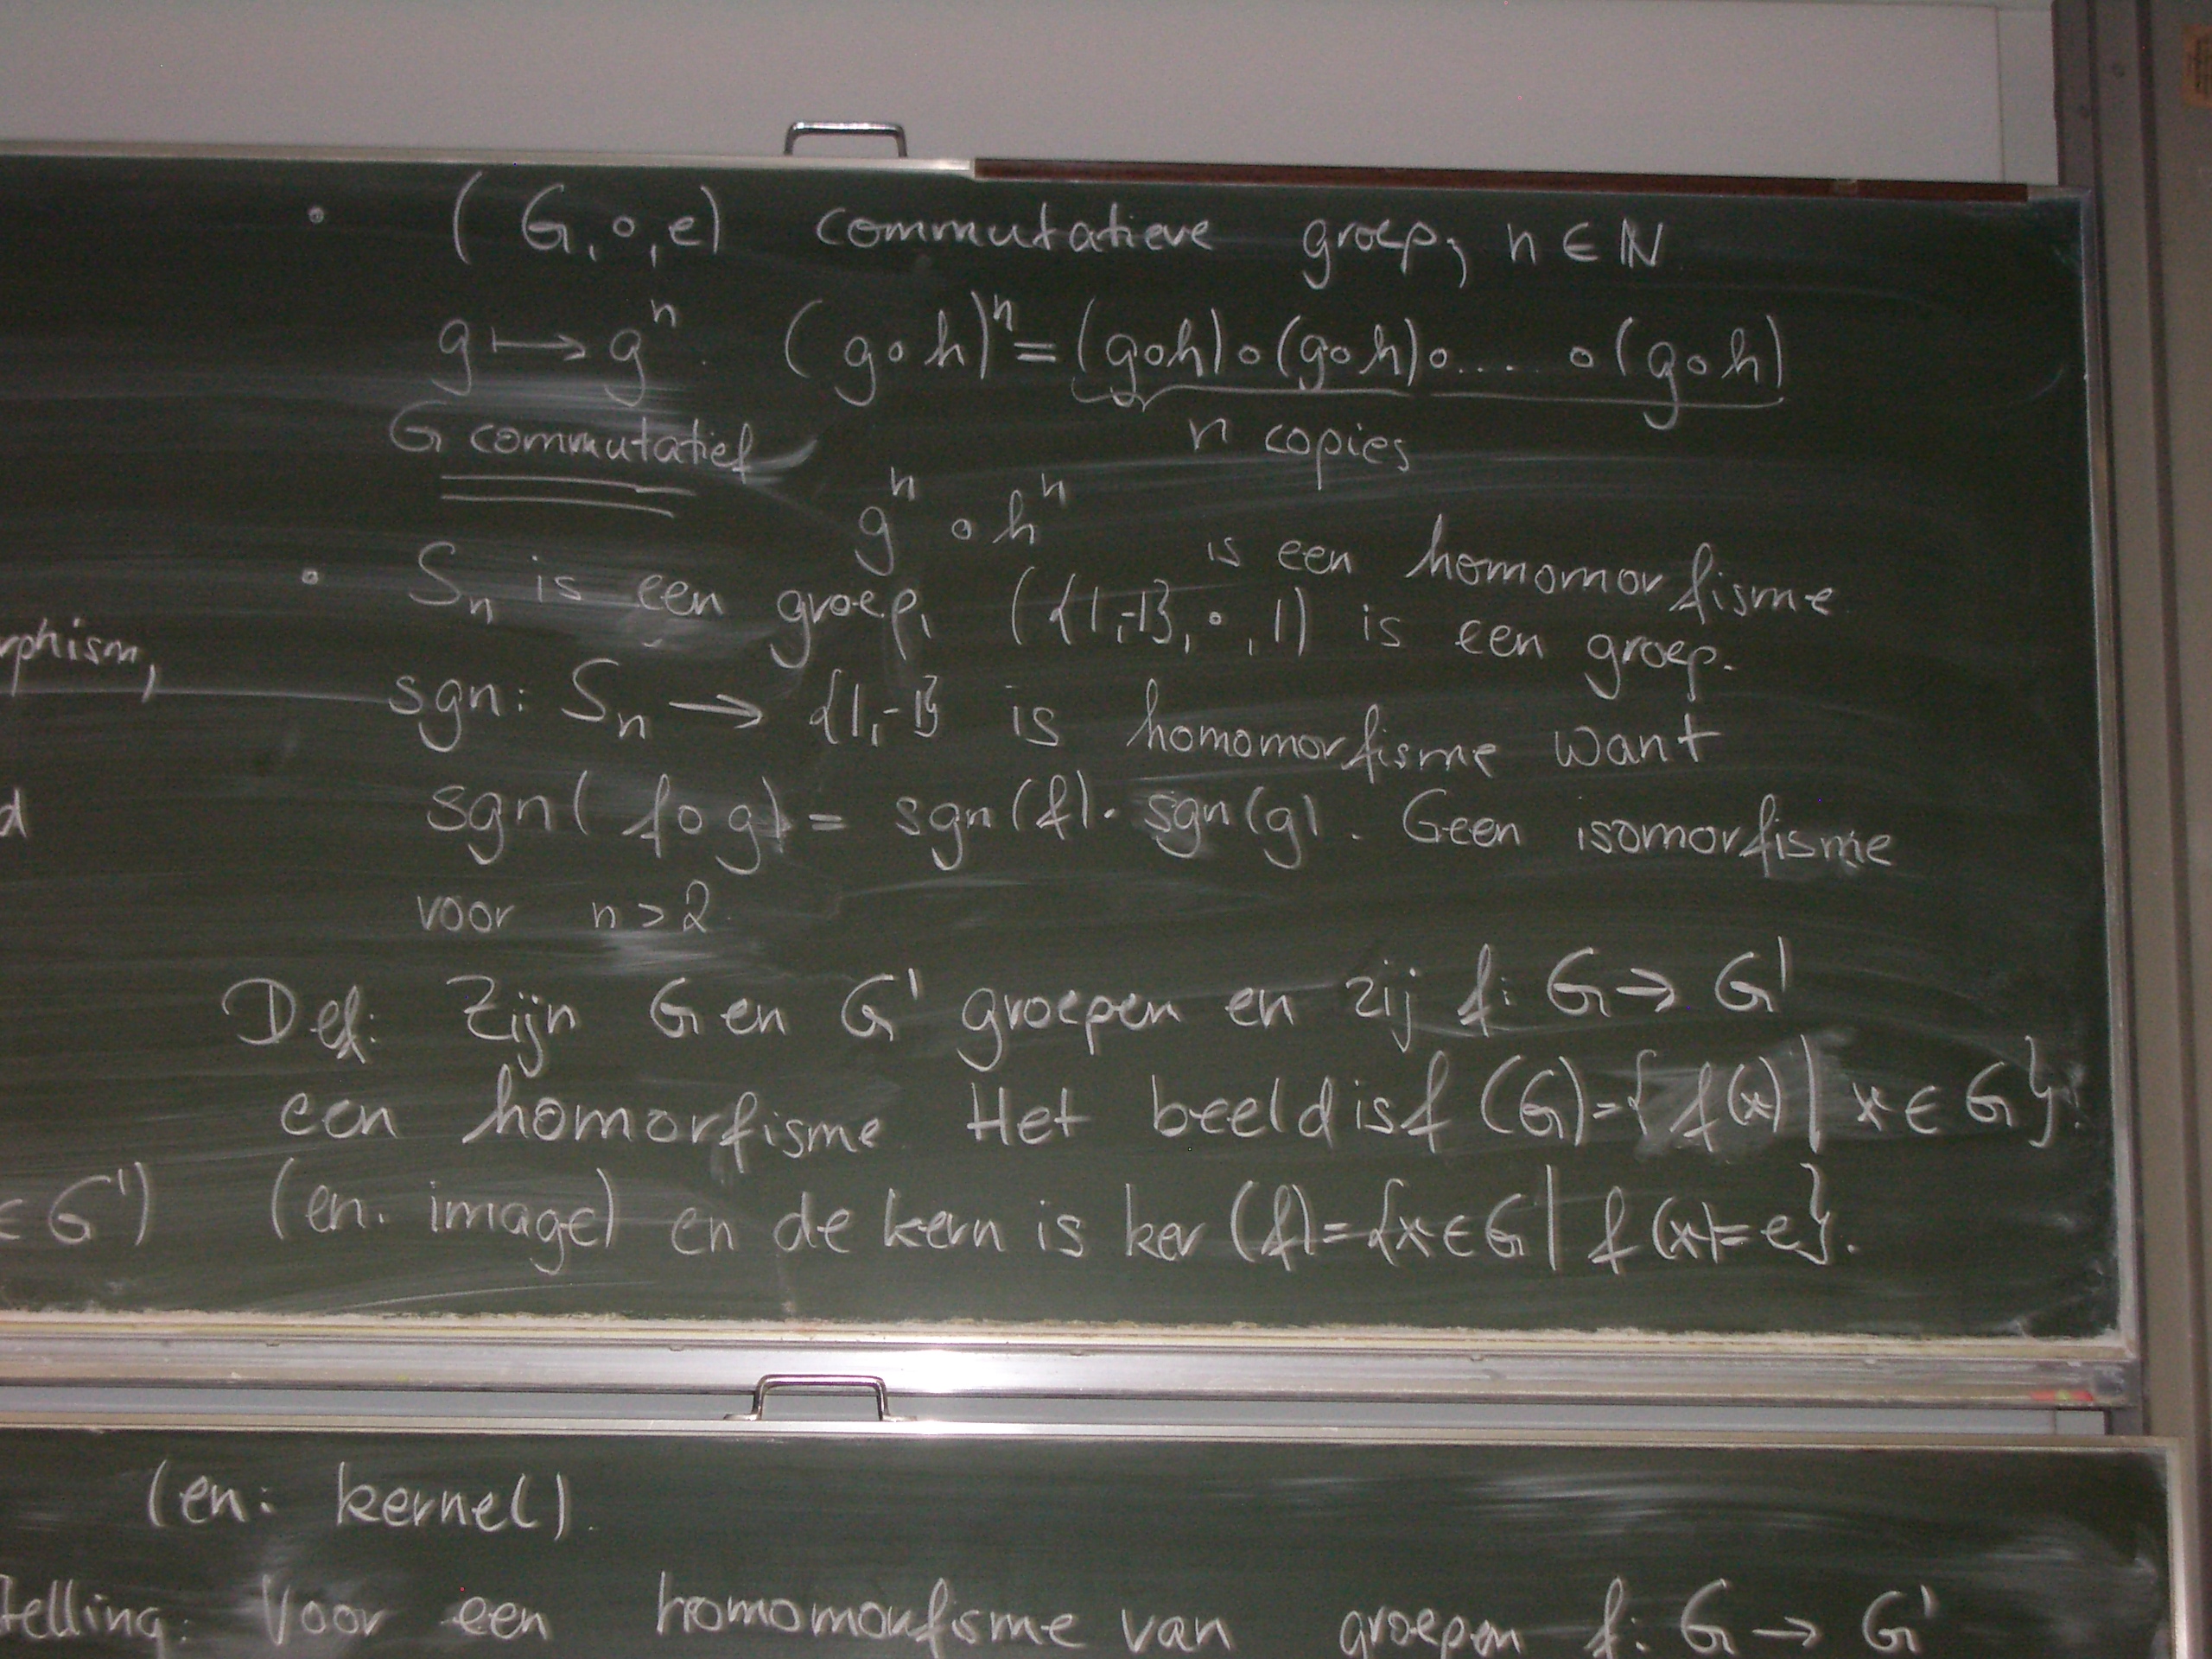 • (G, ∘, e) commutatieve groep, n ∈ ℕ
g ↦ gⁿ. (g∘h)ⁿ = (g∘h)∘(g∘h)∘.... ∘(g∘h)
G commutatief n copies
gⁿ ∘ hⁿ is een homomorfisme
• Sₙ is een groep, ({1,-1}, ·, 1) is een groep.
rphism,
sgn: Sₙ → {1,-1} is homomorfisme want
d sgn(f∘g) = sgn(f)· sgn(g). Geen isomorfisme
voor n>2
Def: Zijn G en G' groepen en zij f: G → G'
een homorfisme. Het beeld is f(G)={f(x) | x ∈ G}.
∈ G') (en. image) en de kern is ker(f)={x∈G | f(x)=e}.
(en: kernel).
telling: Voor een homomorfisme van groepen f: G → G'